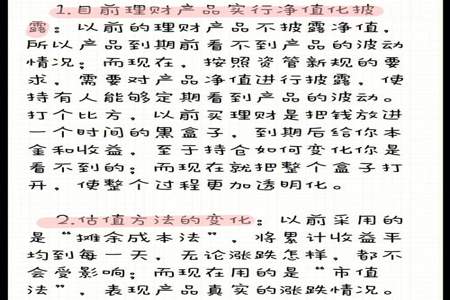 1.目前理财产品实行净值化披
露：以前的理财产品不披露净值，
所以产品到期前看不到产品的波动
情况；而现在，按照资管新规的要
求，需要对产品净值进行披露，使
持有人能够定期看到产品的波动。
打个比方，以前买理财是把钱放进
一个时间的黑盒子，到期后给你本
金和收益，至于持仓如何变化你是
看不到的；而现在就把整个盒子打
开，使整个过程更加透明化。
2.估值方法的变化：以前采用的
是“摊余成本法”，将累计收益平
均到每一天，无论涨跌怎样，都不
会受影响；而现在用的是“市值
法”，表现产品真实的涨跌情况。